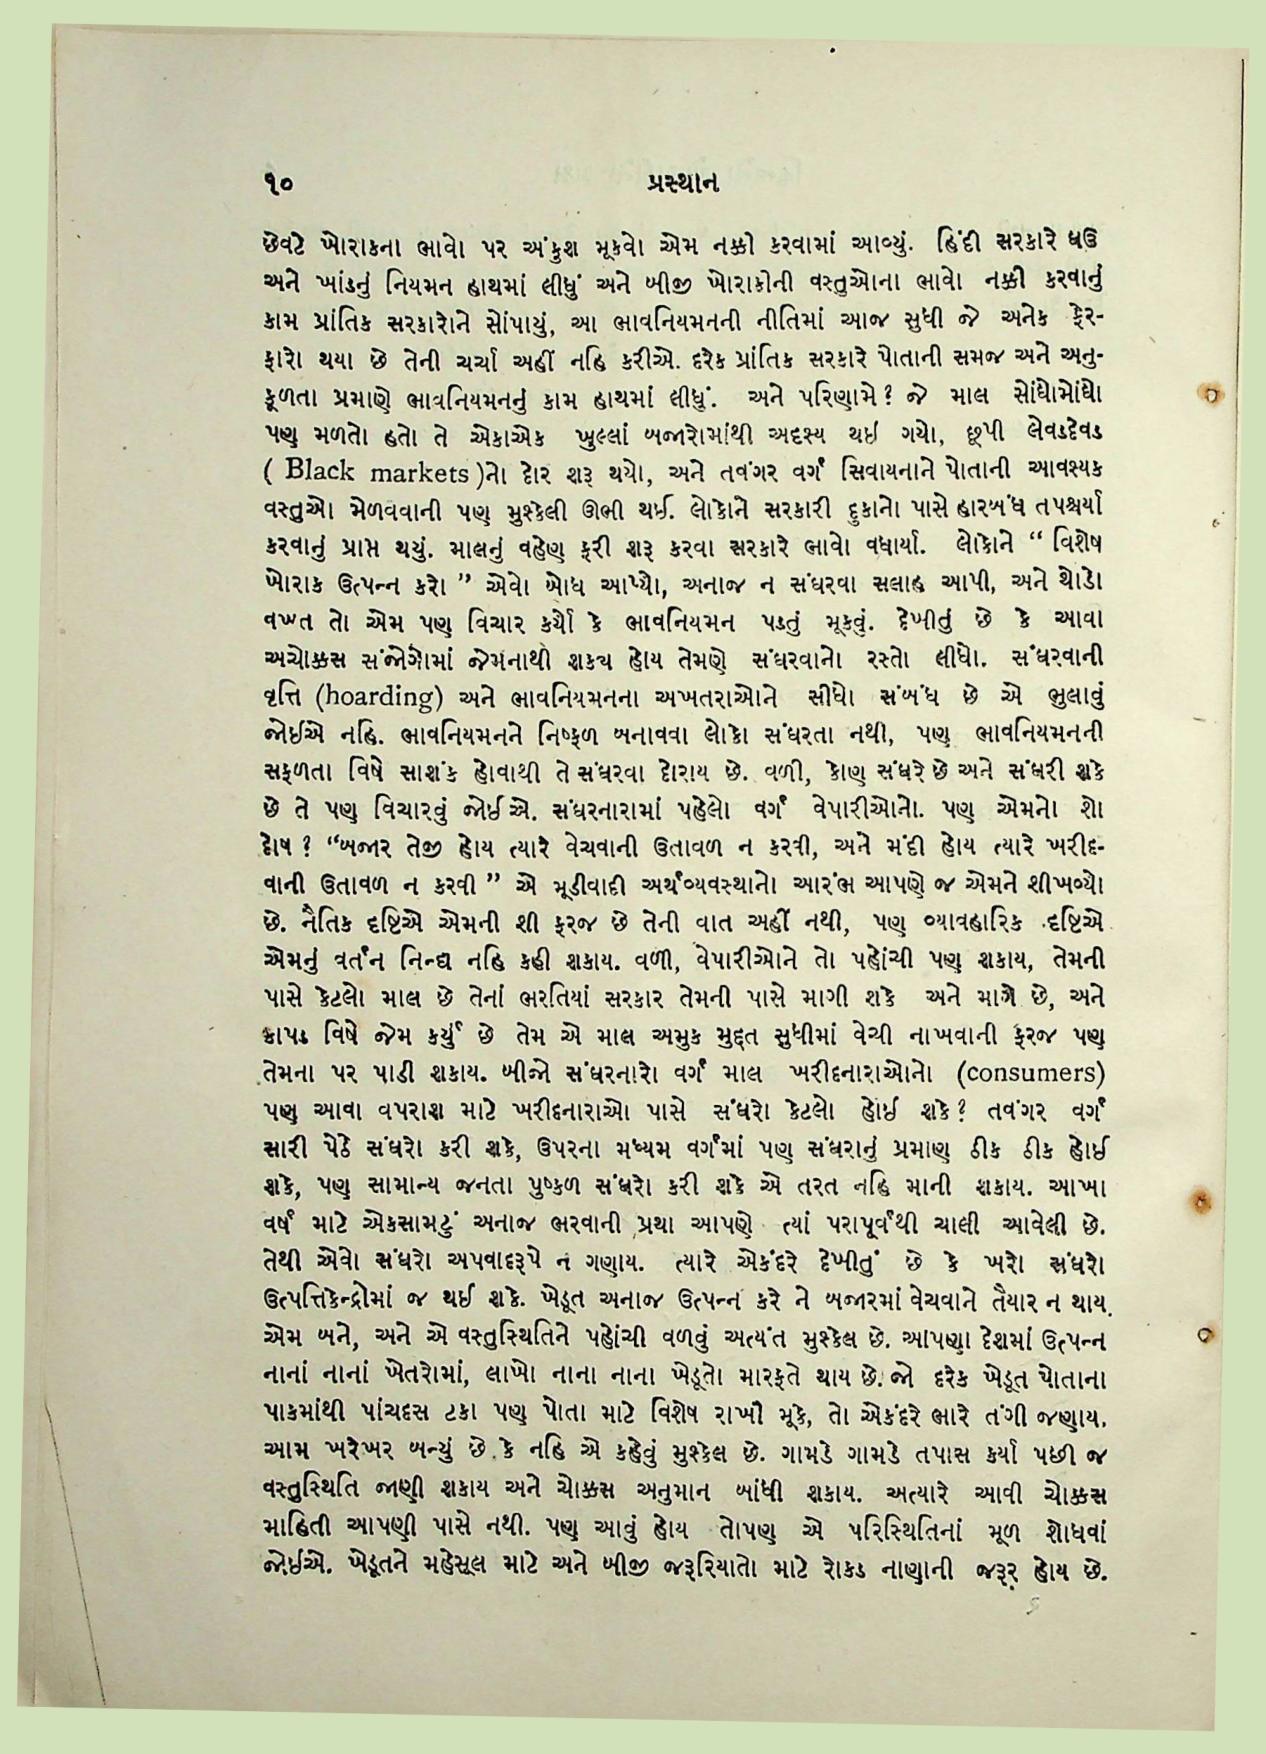 ૧૦ પ્રસ્થાન
છેવટે ખોરાકના ભાવો પર અંકુશ મૂકવો એમ નક્કી કરવામાં આવ્યું. હિંદી સરકારે ઘઉં
અને ખાંડનું નિયમન હાથમાં લીધું અને બીજી ખોરાકોની વસ્તુઓના ભાવો નક્કી કરવાનું
કામ પ્રાંતિક સરકારોને સોંપાયું, આ ભાવનિયમનની નીતિમાં આજ સુધી જે અનેક ફેર-
ફારો થયા છે તેની ચર્ચા અહીં નહિ કરીએ. દરેક પ્રાંતિક સરકારે પોતાની સમજ અને અનુ-
કૂળતા પ્રમાણે ભાવનિયમનનું કામ હાથમાં લીધું. અને પરિણામે? જે માલ સોંઘોમોંઘો
પણ મળતો હતો તે એકાએક ખુલ્લાં બજારોમાંથી અદૃસ્ય થઇ ગયો, છૂપી લેવડદેવડ
( Black markets )નો દોર શરૂ થયો, અને તવંગર વર્ગ સિવાયનાને પોતાની આવશ્યક
વસ્તુઓ મેળવવાની પણ મુશ્કેલી ઊભી થઈ. લોકોને સરકારી દુકાનો પાસે હારબંધ તપશ્ચર્યા
કરવાનું પ્રાપ્ત થયું. માલનું વહેણ ફરી શરૂ કરવા સરકારે ભાવો વધાર્યા. લોકોને “ વિશેષ
ખોરાક ઉત્પન્ન કરો ” એવો બોધ આપ્યો, અનાજ ન સંઘરવા સલાહ આપી, અને થોડો
વખત તો એમ પણ વિચાર કર્યો કે ભાવનિયમન પડતું મૂકવું. દેખીતું છે કે આવા
અચોક્કસ સંજોગોમાં જેમનાથી શક્ય હોય તેમણે સંઘરવાનો રસ્તો લીધો. સંઘરવાની
વૃત્તિ (hoarding) અને ભાવનિયમનના અખતરાઓને સીધો સંબંધ છે એ ભુલાવું
જોઈએ નહિ. ભાવનિયમનને નિષ્ફળ બનાવવા લોકો સંઘરતા નથી, પણ ભાવનિયમનની
સફળતા વિષે સાશંક હોવાથી તે સંઘરવા દોરાય છે. વળી, કોણ સંઘરે છે અને સંઘરી શકે
છે તે પણ વિચારવું જોઈએ. સંઘરનારામાં પહેલો વર્ગ વેપારીઓનો. પણ એમનો શો
દોષ ? “બજાર તેજી હોય ત્યારે વેચવાની ઉતાવળ ન કરવી, અને મંદી હોય ત્યારે ખરીદ-
વાની ઉતાવળ ન કરવી ” એ મૂડીવાદી અર્થવ્યવસ્થાનો આરંભ આપણે જ એમને શીખવ્યો
છે. નૈતિક દૃષ્ટિએ એમની શી ફરજ છે તેની વાત અહીં નથી, પણ વ્યાવહારિક દૃષ્ટિએ
એમનું વર્તન નિન્દ્ય નહિ કહી શકાય. વળી, વેપારીઓને તો પહોંચી પણ શકાય, તેમની
પાસે કેટલો માલ છે તેનાં ભરતિયાં સરકાર તેમની પાસે માગી શકે અને માગે છે, અને
કાપડ વિષે જેમ કર્યું છે તેમ એ માલ અમુક મુદ્દત સુધીમાં વેચી નાખવાની ફરજ પણ
તેમના પર પાડી શકાય. બીજો સંઘરનારો વર્ગ માલ ખરીદનારાઓનો (consumers)
પણ આવા વપરાશ માટે ખરીદનારાઓ પાસે સંઘરો કેટલો હોઈ શકે? તવંગર વર્ગ
સારી પેઠે સંઘરો કરી શકે, ઉપરના મધ્યમ વર્ગમાં પણ સંઘરાનું પ્રમાણ ઠીક ઠીક હોઈ
શકે, પણ સામાન્ય જનતા પુષ્કળ સંઘરો કરી શકે એ તરત નહિ માની શકાય. આખા
વર્ષ માટે એકસામટું અનાજ ભરવાની પ્રથા આપણે ત્યાં પરાપૂર્વથી ચાલી આવેલી છે.
તેથી એવો સંઘરો અપવાદરૂપે ન ગણાય. ત્યારે એકંદરે દેખીતું છે કે ખરો સંઘરો
ઉત્પત્તિકેન્દ્રોમાં જ થઈ શકે. ખેડૂત અનાજ ઉત્પન્ન કરે ને બજારમાં વેચવાને તૈયાર ન થાય.
એમ બને, અને એ વસ્તુસ્થિતિને પહોંચી વળવું અત્યંત મુશ્કેલ છે. આપણા દેશમાં ઉત્પન્ન
નાનાં નાનાં ખેતરોમાં, લાખો નાના નાના ખેડૂતો મારફતે થાય છે. જો દરેક ખેડૂત પોતાના
પાકમાંથી પાંચદસ ટકા પણ પોતા માટે વિશેષ રાખી મૂકે, તો એકંદરે ભારે તંગી જણાય.
આમ ખરેખર બન્યું છે કે નહિ એ કહેવું મુશ્કેલ છે. ગામડે ગામડે તપાસ કર્યા પછી જ
વસ્તુસ્થિતિ જાણી શકાય અને ચોક્કસ અનુમાન બાંધી શકાય. અત્યારે આવી ચોક્કસ
માહિતી આપણી પાસે નથી. પણ આવું હોય તોપણ એ પરિસ્થિતિનાં મૂળ શોધવાં
જોઈએ. ખેડૂતને મહેસૂલ માટે અને બીજી જરૂરિયાતો માટે રોકડ નાણાની જરૂર હોય છે.